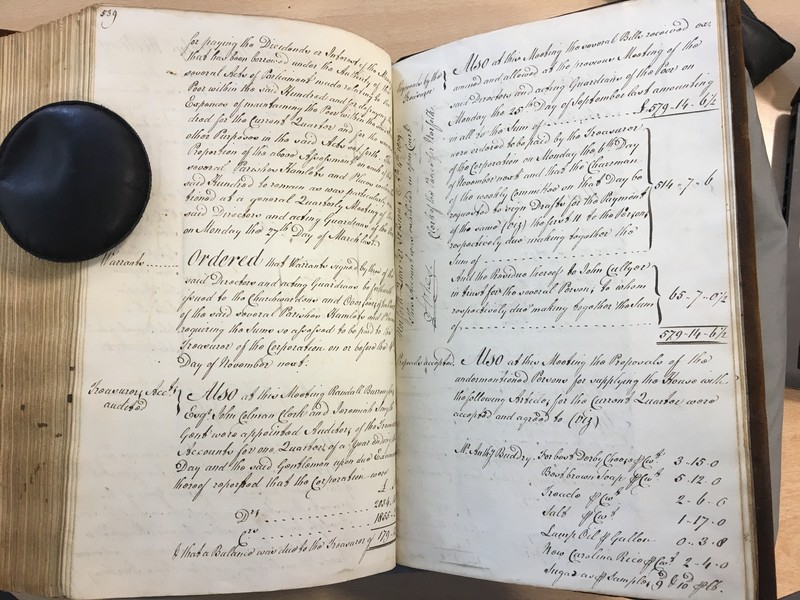 539
for paying the Dividends or Interest of the
that has been borrowed under the Authority of the
several Acts of Parliament made relating to the
Poor within the said Hundred and for defraying the
Expences of maintaining the Poor within the said
dred for the Current Quarter and for the
other Purposes in the said Acts set forth the
Proportion of the above Assessment on each of the
several Parishes Hamlets and Places
said Hundred to remain as was particularly
tioned at a general Quarterly Meeting of
said Directors and acting Guardians of the
on Monday the 27th Day of March last
Warrants
Ordered that Warrants signed by three of the
said Directors and acting Guardians be
issued to the Churchwardens and Overseers
of the said several Parishes Hamlets and
requiring the Sums so assessed to be paid to the
Treasurer of the Corporation on or before the 6
Day of November next.
Treasurers Acct.
audited
Also at this Meeting Randall
Esqr. John Colman Clerk and Jeremiah
Gent were appointed Auditors of the
Accounts for one Quarter of a Year
Day and the said Gentlemen upon due
thereof reported that the Corporation were
£
Dr.
Cr.
& that a Balance was due to the Treasurer of
Also at this Meeting the several Bills received ex-
amined and allowed at the previous Meeting of the
said Directors and acting Guardians of the Poor on
Monday the 25th Day of September last amounting
in all to the Sum of £579-14-6½
were ordered to be paid by the Treasurer
of the Corporation on Monday the 6th Day
of November next and that the Chairman
of the weekly Committee on that Day be
requested to sign Drafts for the Payment
of the same (viz) the first 11 to the Persons
respectively due making together the
Sum of 514-7-6
And the Residue thereof to John Cullyer
in trust for the several Persons to whom
respectively due making together the Sum
of 65-7-0½
579-14-6½
Proposals accepted.
Also at this Meeting the Proposals of the
undermentioned Persons for supplying the House with
the following Articles for the Current Quarter were
accepted and agreed to (viz)
Mr. Anthy. Buddry. For best Derby Cheese ⅌ Cwt. 3-15-0
Best brown Soap ⅌ Cwt. 5-12-0
Treacle ⅌ Cwt. 2-6-6
Salt ⅌ Cwt. 1-17-0
Lamp Oil ⅌ Gallon 0-3-8
New Carolina Rice ⅌ Cwt. 2-4-0
Sugar as ⅌ Samples 9 & 10 ⅌ lb.